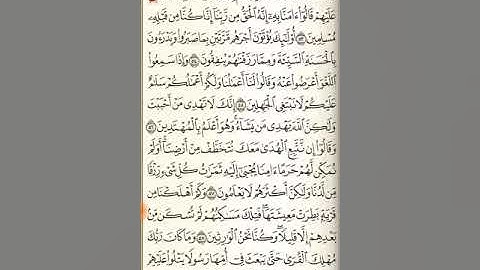 عَلَيْهِمْ قَالُوٓا۟ ءَامَنَّا بِهِۦٓ إِنَّهُ ٱلْحَقُّ مِن رَّبِّنَآ إِنَّا كُنَّا مِن قَبْلِهِۦ
مُسْلِمِينَ ۝٥٣ أُو۟لَٰٓئِكَ يُؤْتَوْنَ أَجْرَهُم مَّرَّتَيْنِ بِمَا صَبَرُوا۟ وَيَدْرَءُونَ
بِٱلْحَسَنَةِ ٱلسَّيِّئَةَ وَمِمَّا رَزَقْنَٰهُمْ يُنفِقُونَ ۝٥٤ وَإِذَا سَمِعُوا۟
ٱللَّغْوَ أَعْرَضُوا۟ عَنْهُ وَقَالُوا۟ لَنَآ أَعْمَٰلُنَا وَلَكُمْ أَعْمَٰلُكُمْ سَلَٰمٌ
عَلَيْكُمْ لَا نَبْتَغِى ٱلْجَٰهِلِينَ ۝٥٥ إِنَّكَ لَا تَهْدِى مَنْ أَحْبَبْتَ
وَلَٰكِنَّ ٱللَّهَ يَهْدِى مَن يَشَآءُ ۚ وَهُوَ أَعْلَمُ بِٱلْمُهْتَدِينَ ۝٥٦
وَقَالُوٓا۟ إِن نَّتَّبِعِ ٱلْهُدَىٰ مَعَكَ نُتَخَطَّفْ مِنْ أَرْضِنَآ ۚ أَوَلَمْ
نُمَكِّن لَّهُمْ حَرَمًا ءَامِنًا يُجْبَىٰٓ إِلَيْهِ ثَمَرَٰتُ كُلِّ شَىْءٍ رِّزْقًا
مِّن لَّدُنَّا وَلَٰكِنَّ أَكْثَرَهُمْ لَا يَعْلَمُونَ ۝٥٧ وَكَمْ أَهْلَكْنَا مِن
قَرْيَةٍۭ بَطِرَتْ مَعِيشَتَهَا ۖ فَتِلْكَ مَسَٰكِنُهُمْ لَمْ تُسْكَن مِّنۢ
بَعْدِهِمْ إِلَّا قَلِيلًا ۖ وَكُنَّا نَحْنُ ٱلْوَٰرِثِينَ ۝٥٨ وَمَا كَانَ رَبُّكَ
مُهْلِكَ ٱلْقُرَىٰ حَتَّىٰ يَبْعَثَ فِىٓ أُمِّهَا رَسُولًا يَتْلُوا۟ عَلَيْهِمْ